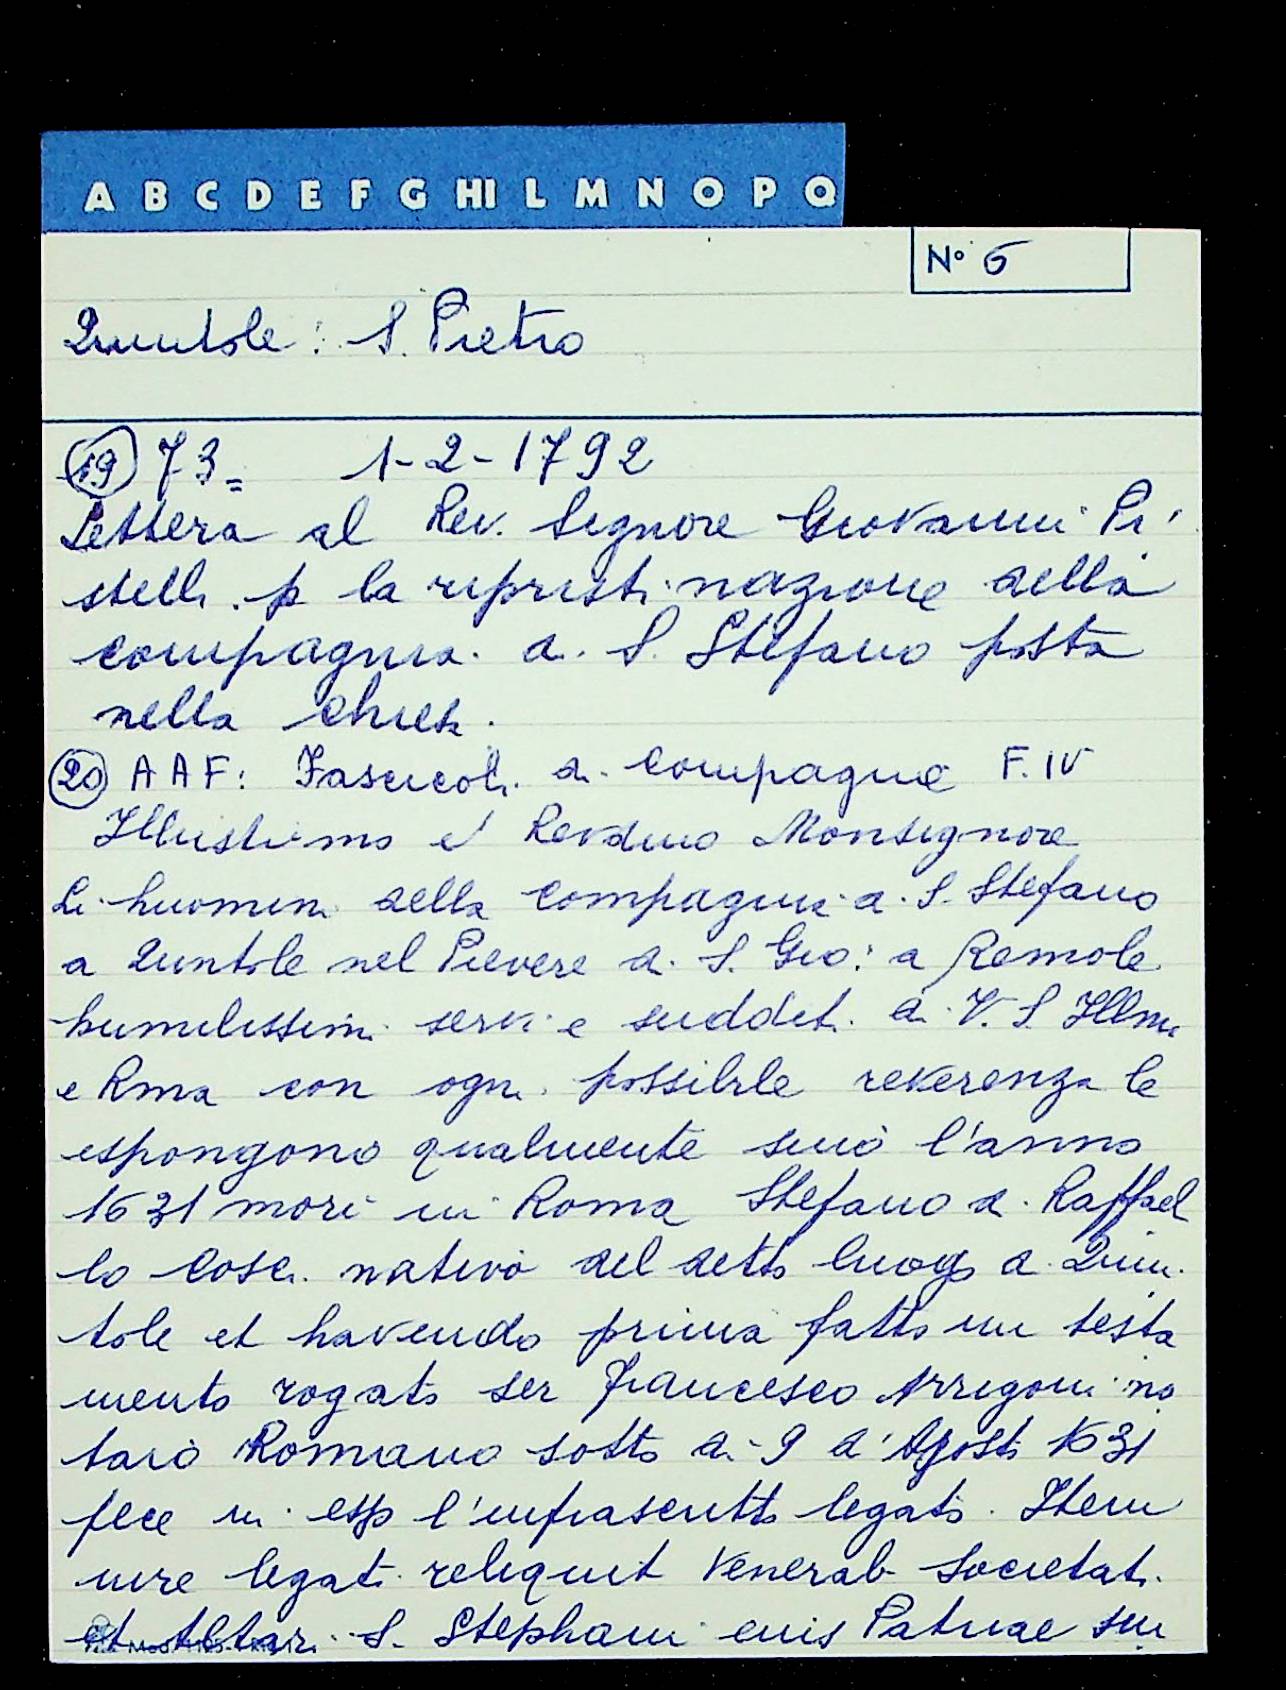 A B C D E F G HI L M N O P Q
N° 6
Quintole: S. Pietro
(19) 73= 1-2-1792
Lettera al Rev. Signore Giovanni Pi
stelli p la ripristinazione della
compagnia di S. Stefano posta
nella chiesa.
(20) AAF: Fascicoli di compagnie F. IV
Illustrimo e Revdmo Monsignore
Li huomini della compagnia di S. Stefano
a Quintole nel Pievere di S. Gio: a Remole
humilissimi servi e sudditi di V. S. Illma
e Rma con ogni possibile reverenza le
espongono qualmente sino l'anno
1631 morì in Roma Stefano di Raffael
lo Cosci nativo del detto luogo di Quin
tole et havendo prima fatto un testa
mento rogato ser Francesco Arrigoni no
taro Romano sotto di 9 d'Agosto 1631
fece in esso l'infrascritto legato. Item
iure legati reliquit Venerab Societati
et Altari S. Stephani eius Patriae